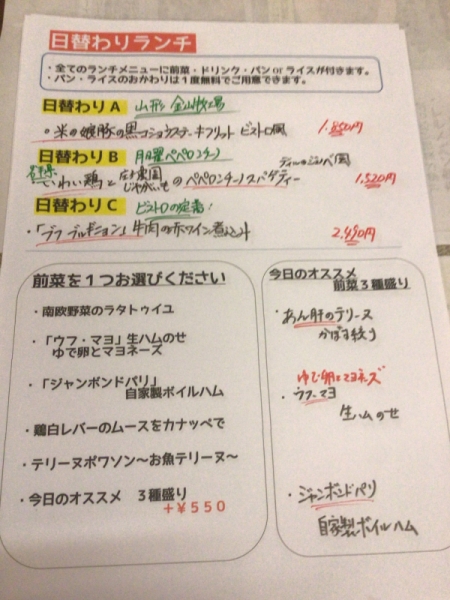 日替わりランチ
・全てのランチメニューに前菜・ドリンク・パンorライスが付きます。
・パン・ライスのおかわりは1度無料でご用意できます。
日替わりA 山形 金山牧場
・米の娘豚の黒コショウステーキフリット ビストロ風 1,850円
日替わりB 月曜ペペロンチーノ
いわい鶏と じゃがいものペペロンチーノスパゲティー 1,520円
日替わりC ビストロの定番!
・「ブフ ブルギニョン」牛肉の赤ワイン煮込み 2,490円
前菜を1つお選びください
・南欧野菜のラタトゥイユ
・「ウフ・マヨ」生ハムのせ
ゆで卵とマヨネーズ
・「ジャンボンドパリ」
自家製ボイルハム
・鶏白レバーのムースをカナッペで
・テリーヌポワソン~お魚テリーヌ~
・今日のオススメ 3種盛り
+¥550
今日のオススメ
前菜3種盛り
・あん肝のテリーヌ
かぼす絞り
ゆで卵とマヨネーズ
・ウフ・マヨ
生ハムのせ
・ジャンボンドパリ
自家製ボイルハム